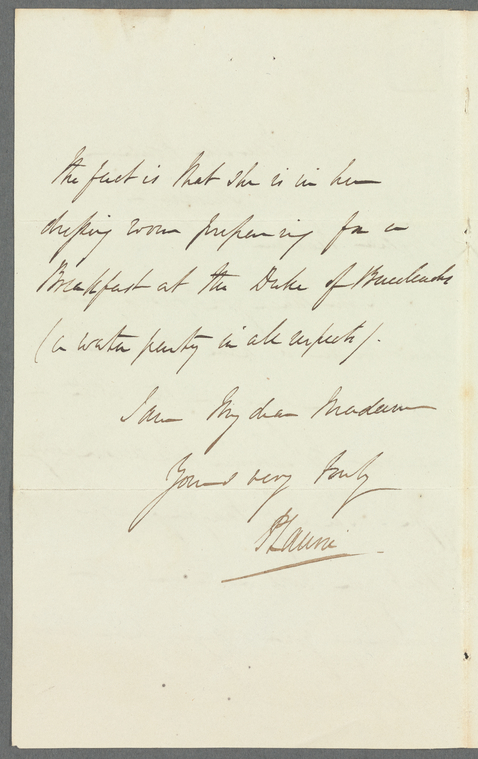 The fact is that she is in her
dressing room preparing for a
Breakfast at the Duke of Buccleuchs
(a water party in all respects).
I am My dear Madam
Yours very truly